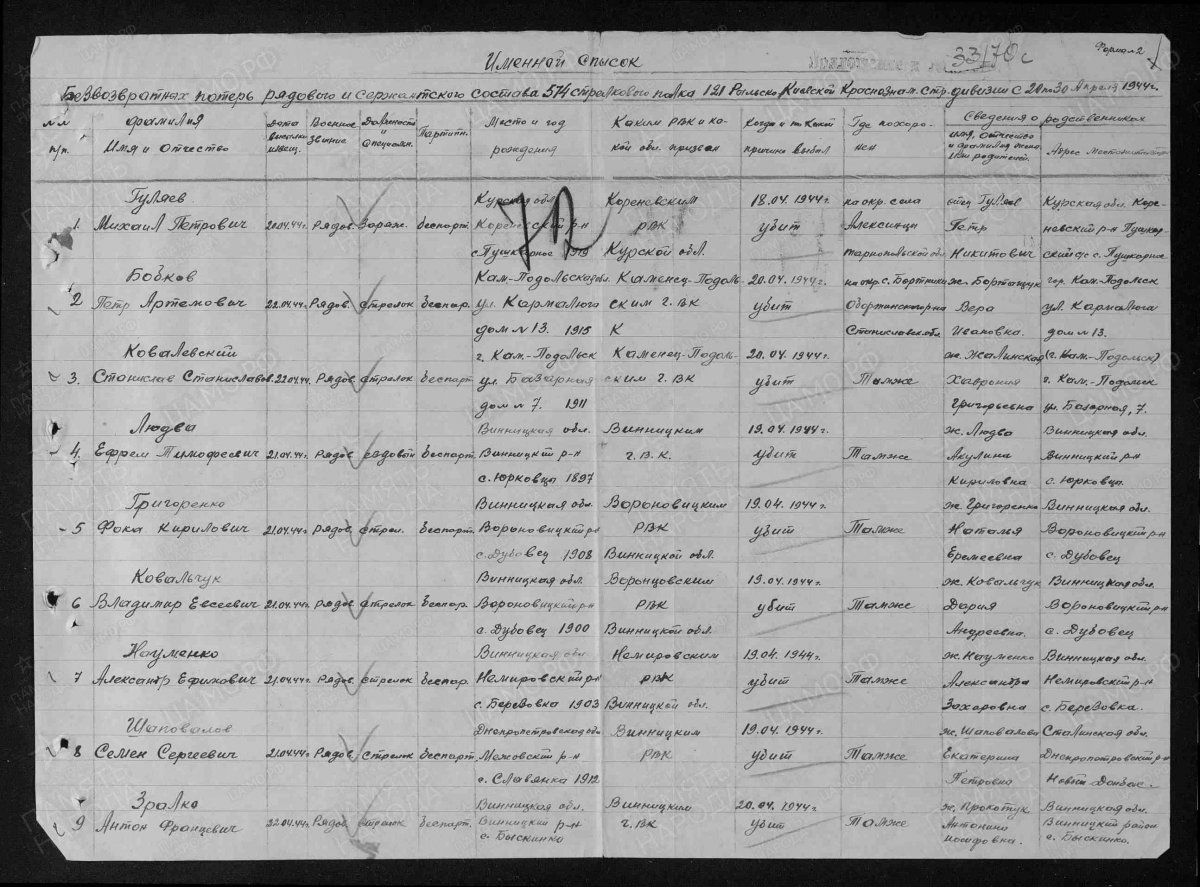 Форма 2
33170с
Именной список
Безвозвратных потерь рядового и сержантского состава 574 стрелкового полка 121 Рыльско Киевской Краснознам. стр. дивизии с 20 по 30 Апреля 1944 г.
№ № п/п. Фамилия Имя и Отчество Дата высылки извещ. Военное звание Должность и специальн. Партийн. Место и год рождения Каким РВК и какой обл. призван Когда и по какой причине выбыл Где похоронен Сведения о родственниках
имя, отчество и фамилия жены или родителей. Адрес местожительства
72
Гуляев Курская обл. Кореневским 18.04.1944 г. на окр. села отец Гуляев Курская обл. Коре-
1 Михаил Петрович 20.04.44 г. Рядов. беспарт. Кореневский р-н РВК убит Алексинцы Петр невский р-н Пушкар-
с. Пушкарное 1913 Курской обл. тарнопольской обл. Никитович с. Пушкарное
Бобков Кам-Подольская обл. Каменец-Подоль- 20.04.1944 г. на окр. с. Бортники ж. Бортащук гор. Кам-Подольск
2 Петр Артемович 22.04.44 г. Рядов. стрелок беспар. ул. Кармалюга ским г. ВК убит Вера ул. Кармалюга
дом № 13. 1915 К Станиславск. обл. Ивановна. дом № 13.
Ковалевский г. Кам.-Подольск Каменец-Подоль- 20.04.1944 г. ж. Жалинская (г. Кам.-Подольск)
3. Станислав Станиславов. 22.04.44 г. Рядов. стрелок беспарт. ул. Базарная ским г. ВК убит Там же Хаврония г. Кам.-Подольск
дом № 7. 1911 Григорьевна ул. Базарная, 7.
Людва Винницкая обл. Винницким 19.04.1944 г. ж. Людва Винницкая обл.
4. Ефрем Тимофеевич 21.04.44 г. Рядов рядовой беспарт. Винницк р-н г. В.К. убит Там же Акулина Винницк р-н
с. Юрковцы 1897 Кириловна с. Юрковцы
Григоренко Винницкая обл. Вороновицким 19.04.1944 г. ж. Григоренко Винницкая обл.
5 Фока Кирилович 21.04.44 г. Рядов. стрел. беспарт. Вороновицкий р-н РВК убит Там же Наталья Вороновицкий р-н
с. Дубовец 1908 Винницкой обл. Еремеевна с. Дубовец
Ковальчук Винницкая обл. Воронцовским 19.04.1944 г. ж. Ковальчук Винницкая обл.
6 Владимир Евсеевич 21.04.44 г. Рядов. стрелок беспар. Вороновицкий р-н РВК убит Там же Дария Вороновицкий р-н
с. Дубовец 1900 Винницкой обл. Андреевна. с. Дубовец
Науменко Винницкая обл Немировским 19.04.1944 г. ж. Науменко Винницкая обл.
7 Александр Ефимович 21.04.44 г. Рядов. стрелок беспар. Немировский р-н РВК убит Там же Александра Немировский р-н
с. Березовка 1903 Винницкой обл. Захоровна с. Березовка.
Шаповалов Днепропетровская обл Винницким 19.04.1944 г. ж. Шаповалова Сталинская обл.
8 Семен Сергеевич 21.04.44 г. Рядов. Стрелок беспарт. Межовский р-н РВК убит Там же Екатерина Днепропетровский р-н
с. Славянка 1912 Петровна Новый Донбас.
Зралко Винницкая обл. Винницким 20.04.1944 г. ж. Прокопчук Винницкая обл.
9 Антон Францевич 22.04.44 г. Рядов. стрелок беспарт. Винницкий р-н г. ВК убит Там же Антонина Винницкий район
с. Быскинко Иосифовна. с. Быскинко.